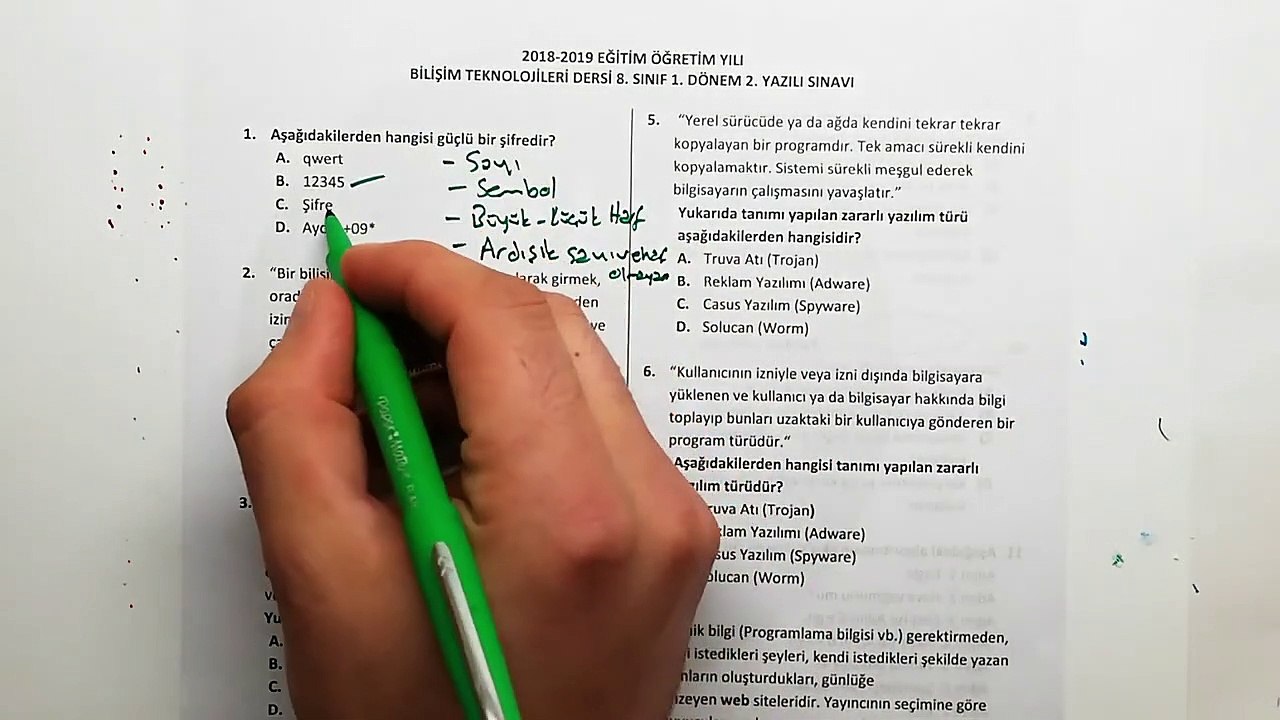 2018-2019 EĞİTİM ÖĞRETİM YILI
BİLİŞİM TEKNOLOJİLERİ DERSİ 8. SINIF 1. DÖNEM 2. YAZILI SINAVI
1. Aşağıdakilerden hangisi güçlü bir şifredir?
A. qwert
B. 12345
C. Şifre
D. +09*
- Sayı
- Sembol
- Büyük - Küçük Harf
- Ardışık
olmayan
2. "Bir
girmek,
ve
3.
A.
B.
C.
D.
5. "Yerel sürücüde ya da ağda kendini tekrar tekrar
kopyalayan bir programdır. Tek amacı sürekli kendini
kopyalamaktır. Sistemi sürekli meşgul ederek
bilgisayarın çalışmasını yavaşlatır."
Yukarıda tanımı yapılan zararlı yazılım türü
aşağıdakilerden hangisidir?
A. Truva Atı (Trojan)
B. Reklam Yazılımı (Adware)
C. Casus Yazılım (Spyware)
D. Solucan (Worm)
6. "Kullanıcının izniyle veya izni dışında bilgisayara
yüklenen ve kullanıcı ya da bilgisayar hakkında bilgi
toplayıp bunları uzaktaki bir kullanıcıya gönderen bir
program türüdür."
Aşağıdakilerden hangisi tanımı yapılan zararlı
türüdür?
Atı (Trojan)
Yazılımı (Adware)
Yazılım (Spyware)
(Worm)
bilgi (Programlama bilgisi vb.) gerektirmeden,
istedikleri şeyleri, kendi istedikleri şekilde yazan
oluşturdukları, günlüğe
web siteleridir. Yayıncının seçimine göre